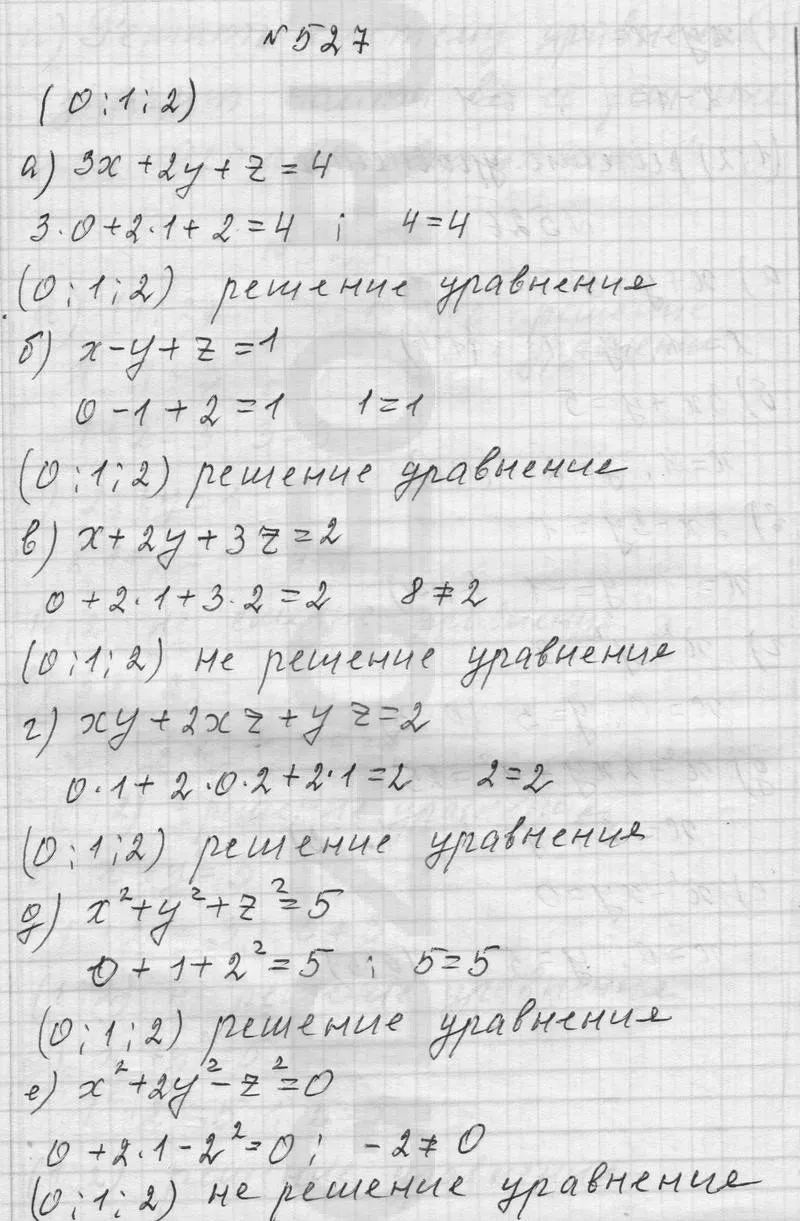 №527
(0;1;2)
а) 3x+2y+z=4
3·0+2·1+2=4 ; 4=4
(0;1;2) решение уравнения
б) x-y+z=1
0-1+2=1 1=1
(0;1;2) решение уравнение
в) x+2y+3z=2
0+2·1+3·2=2 8≠2
(0;1;2) не решение уравнения
г) xy+2xz+yz=2
0·1+2·0·2+2·1=2 2=2
(0;1;2) решение уравнения
д) x²+y²+z²=5
0+1+2²=5 ; 5=5
(0;1;2) решение уравнения
е) x²+2y²-z²=0
0+2·1-2²=0; -2≠0
(0;1;2) не решение уравнение